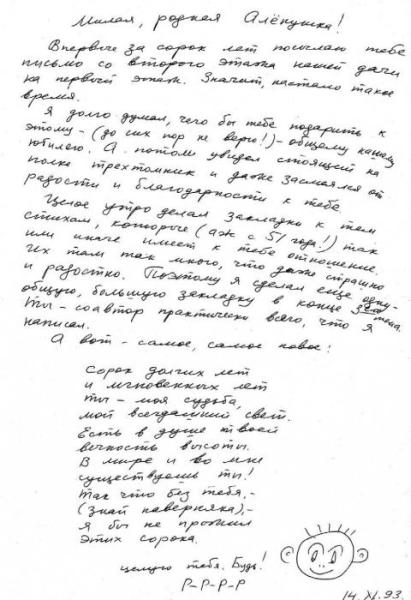 Милая, родная Алёнушка!
Впервые за сорок лет посылаю тебе
письмо со второго этажа нашей дачи
на первый этаж. Значит, настало такое
время.
Я долго думал, чего бы тебе подарить к
этому - (до сих пор не верю!) - общему нашему
юбилею. А потом увидел стоящий на
полке трехтомник и даже засмеялся от
радости и благодарности к тебе
Целое утро делал закладки к тем
стихам, которые (аж с 51 года!) так
или иначе имеют к тебе отношение.
Их там так много, что даже страшно
и радостно. Поэтому я сделал ещё одну-
общую, большую закладку в конце 3го тома.
Ты - соавтор практически всего, что я
написал.
А вот - самое, самое новое:
Сорок долгих лет
и мгновенных лет
ты - моя судьба,
мой всегдашний свет.
Есть в душе твоей
вечность высоты.
В мире и во мне
существуешь ты!
Так что без тебя, -
(знай наверняка), -
я бы не прожил
этих сорока.
целую тебя. Будь!
Р-Р-Р-Р
14. XI. 93.